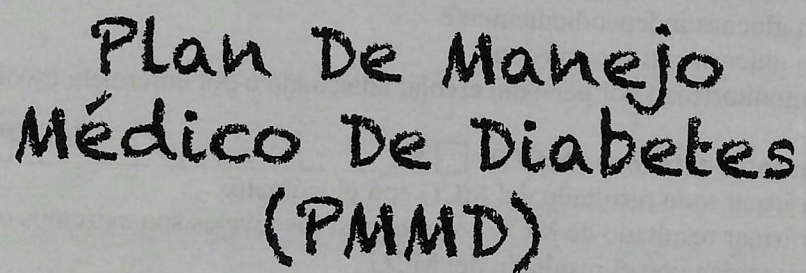 Plan De Manejo
Médico De Diabetes
(PMMD)